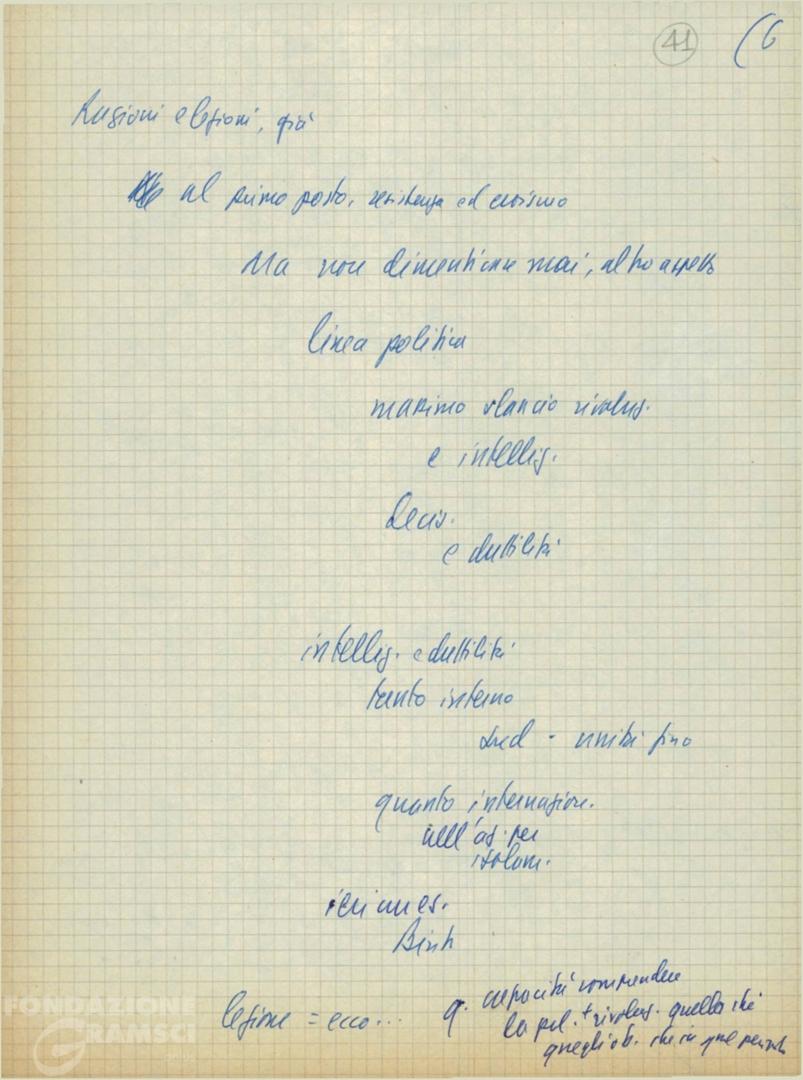 41 (6
Ragioni e lezioni, già
al primo posto, resistenza ed eroismo
Ma non dimenticare mai, altro aspetto
linea politica
massimo slancio rivoluz.
e intellig.
decis.
e duttilità
intellig. e duttilità
tanto interno
sud - unità fino
quanto internazion.
nell'az. per
isolam.
ieri
Binh
lezione = ecco... q. capacità comprendere
la pol. + rivoluz. quella che
che in quel
FONDAZIONE
GRAMSCI